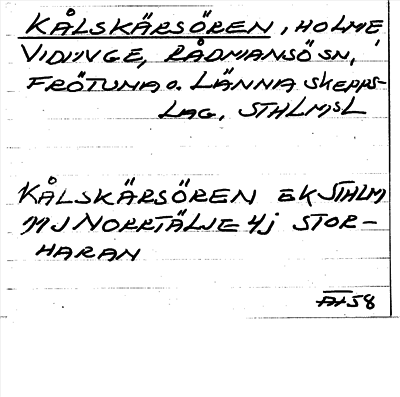 KÅLSKÄRSÖREN, HOLME
VIDINGE, RÅDMANSÖ SN,
FRÖTUNA o. LÄNNA SKEPPS-
LAG, STHLMSL
KÅLSKÄRSÖREN EK STHLM
NJ NORRTÄLJE 4j STOR-
HARAN
58